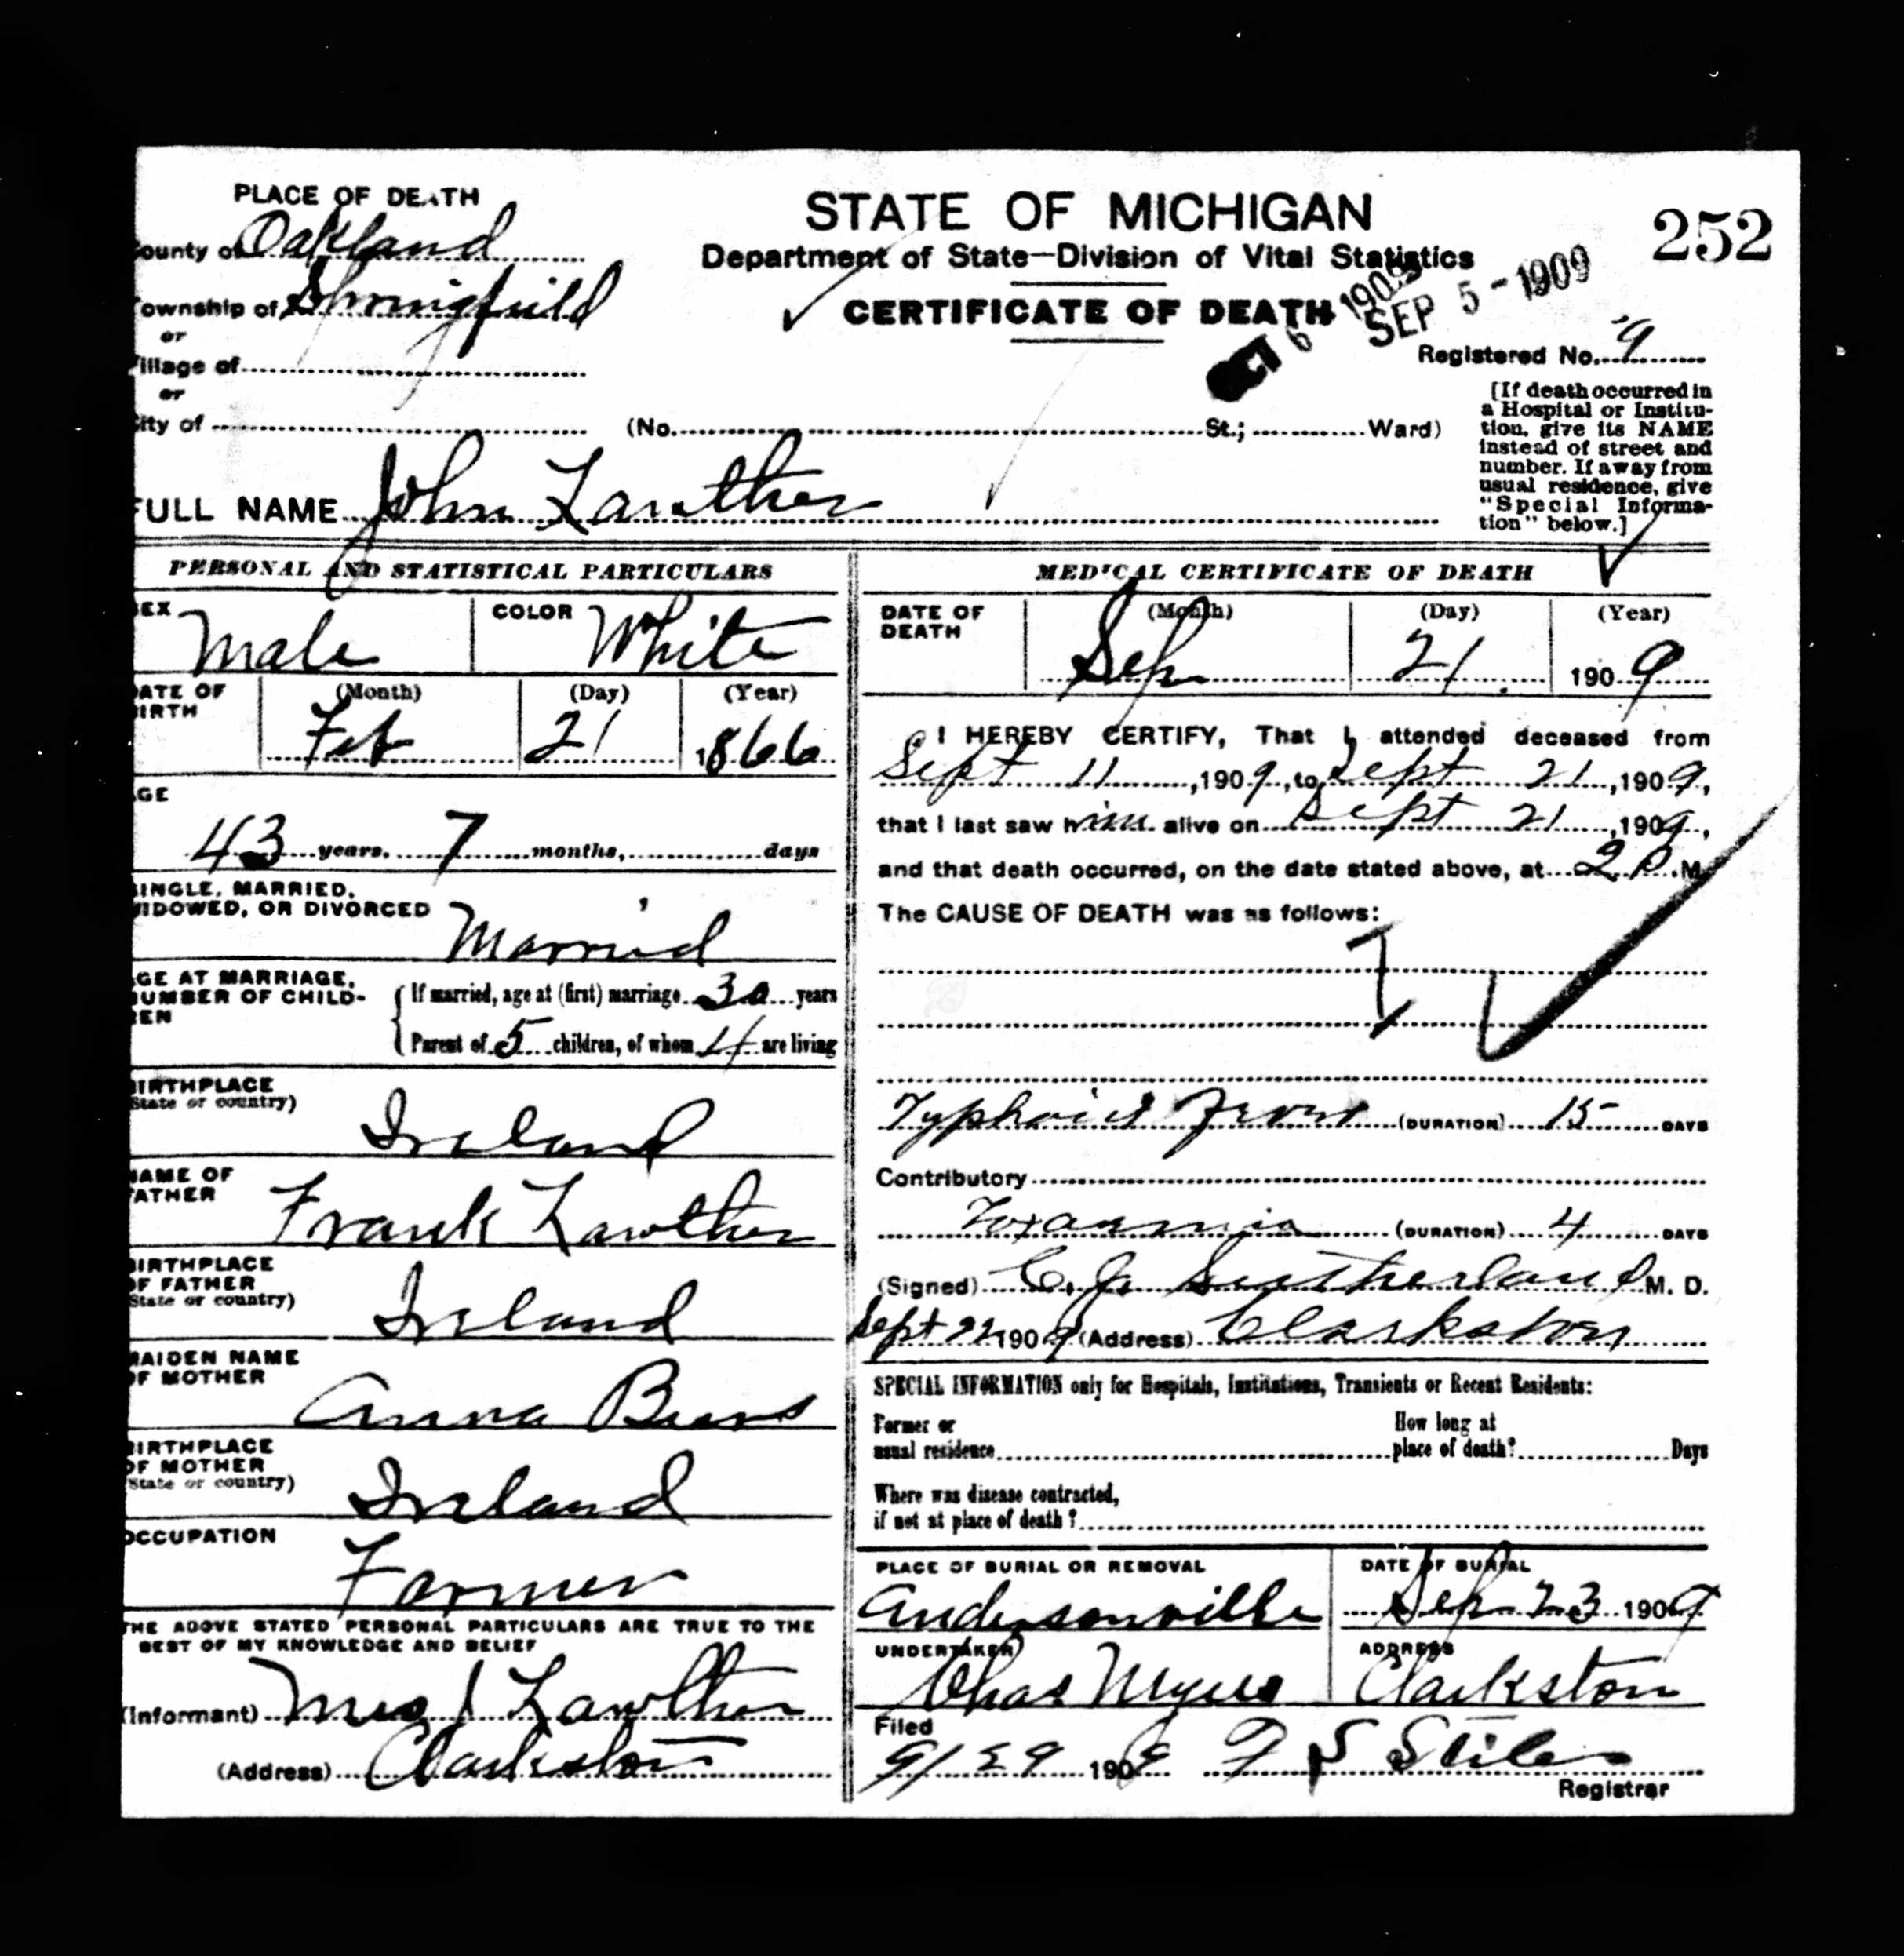 PLACE OF DEATH
ounty of Oakland
ownship of Springfield
or
illage of
or
ity of (No. St.; Ward)
STATE OF MICHIGAN
Department of State—Division of Vital Statistics
CERTIFICATE OF DEATH
252
OCT 6 1909
SEP 5 - 1909
Registered No. 9
[If death occurred in
a Hospital or Institu-
tion, give its NAME
instead of street and
number. If away from
usual residence, give
"Special Informa-
tion" below.]
FULL NAME John Lawther
PERSONAL AND STATISTICAL PARTICULARS
EX Male COLOR White
ATE OF
IRTH
(Month) (Day) (Year)
Feb 21 1866
GE
43 years, 7 months, days
INGLE, MARRIED,
IDOWED, OR DIVORCED Married
GE AT MARRIAGE,
NUMBER OF CHILD-
EN
If married, age at (first) marriage 30 years
Parent of 5 children, of whom 4 are living
BIRTHPLACE
State or country)
Ireland
NAME OF
FATHER Frank Lawther
BIRTHPLACE
OF FATHER
State or country) Ireland
MAIDEN NAME
OF MOTHER Anna
BIRTHPLACE
OF MOTHER
State or country) Ireland
OCCUPATION
Farmer
THE ABOVE STATED PERSONAL PARTICULARS ARE TRUE TO THE
BEST OF MY KNOWLEDGE AND BELIEF
(Informant) Mrs J Lawther
(Address) Clarkston
MEDICAL CERTIFICATE OF DEATH
DATE OF
DEATH
(Month) (Day) (Year)
Sep 21 1909
I HEREBY CERTIFY, That I attended deceased from
Sept 11, 1909, to Sept 21, 1909,
that I last saw him alive on Sept 21, 1909,
and that death occurred, on the date stated above, at 2 P.M.
The CAUSE OF DEATH was as follows:
1
Typhoid Fever (DURATION) 15 DAYS
Contributory
Toxaemia (DURATION) 4 DAYS
(Signed) C. J. Sutherland M. D.
Sept 22 1909 (Address) Clarkston
SPECIAL INFORMATION only for Hospitals, Institutions, Transients or Recent Residents:
Former or
usual residence
How long at
place of death? Days
Where was disease contracted,
if not at place of death?
PLACE OF BURIAL OR REMOVAL
Andersonville
DATE OF BURIAL
Sep 23 1909
UNDERTAKER
Chas Myers
ADDRESS
Clarkston
Filed
9/29 1909 S Stiles
Registrar